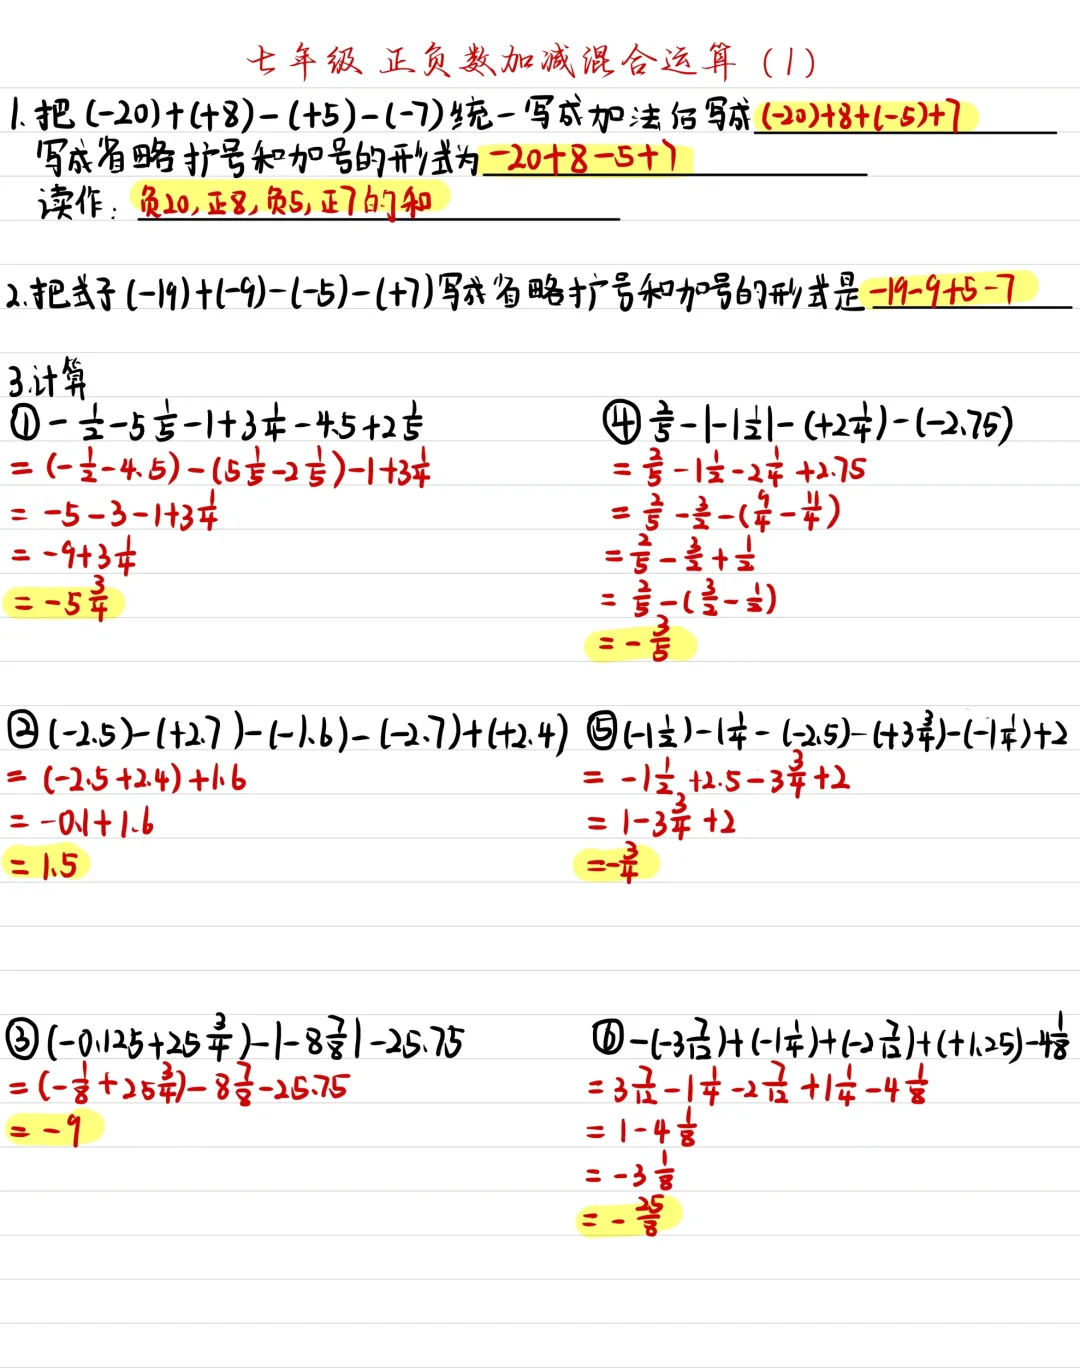 七年级 正负数加减混合运算 (1)
1. 把 (-20)+(+8)-(+5)-(-7)统一写成加法后写成 (-20)+8+(-5)+7
写成省略扩号和加号的形式为 -20+8-5+7
读作: 负20, 正8, 负5, 正7的和
2. 把式子 (-19)+(-9)-(-5)-(+7)写成省略扩号和加号的形式是 -19-9+5-7
3.计算
① -1/2-5 1/5-1+3 1/4-4.5+2 1/5
= (-1/2-4.5)-(5 1/5-2 1/5)-1+3 1/4
= -5-3-1+3 1/4
= -9+3 1/4
= -5 3/4
④ 2/5-|-1 1/2|-(+2 1/4)-(-2.75)
= 2/5-1 1/2-2 1/4+2.75
= 2/5-3/2-(9/4-11/4)
= 2/5-3/2+1/2
= 2/5-(3/2-1/2)
= -3/5
② (-2.5)-(+2.7)-(-1.6)-(-2.7)+(+2.4)
= (-2.5+2.4)+1.6
= -0.1+1.6
= 1.5
⑤ (-1 1/2)-1 1/4-(-2.5)-(+3 3/4)-(-1 1/4)+2
= -1 1/2+2.5-3 3/4+2
= 1-3 3/4+2
=-3/4
③ (-0.125+25 3/4)-|-8 7/8|-25.75
= (-1/8+25 3/4)-8 7/8-25.75
= -9
⑥ -(-3 7/12)+(-1 1/4)+(-2 7/12)+(+1.25)-4 1/8
= 3 7/12-1 1/4-2 7/12+1 1/4-4 1/8
= 1-4 1/8
= -3 1/8
= -25/8